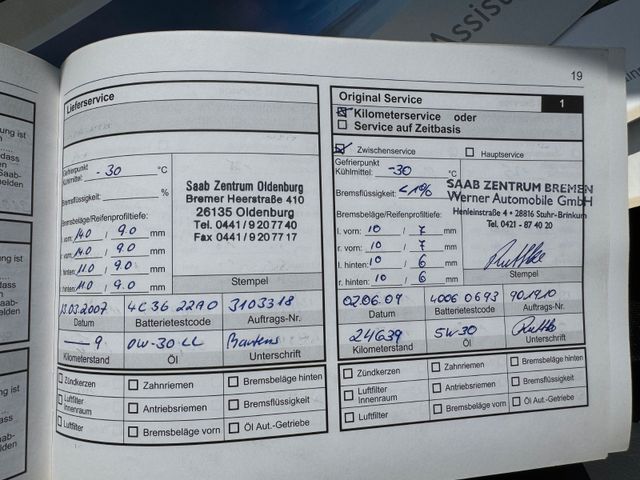 Assis
19
Lieferservice
Gefrierpunkt
Kühlmittel: -30 °C
Bremsflüssigkeit: %
Bremsbeläge/Reifenprofiltiefe:
l. vorn: 14.0 / 9.0 mm
r. vorn: 14.0 / 9.0 mm
l. hinten: 11.0 / 9.0 mm
r. hinten: 11.0 / 9.0 mm
Saab Zentrum Oldenburg
Bremer Heerstraße 410
26135 Oldenburg
Tel. 0441/9 20 77 40
Fax 0441/9 20 77 17
Stempel
13.03.2007 4C36 22A0 3103318
Datum Batterietestcode Auftrags-Nr.
9 0W-30 LL
Kilometerstand Öl Unterschrift
Zündkerzen Zahnriemen Bremsbeläge hinten
Luftfilter
Innenraum Antriebsriemen Bremsflüssigkeit
Luftfilter Bremsbeläge vorn Öl Aut.-Getriebe
Original Service 1
Kilometerservice oder
Service auf Zeitbasis
Zwischenservice Hauptservice
Gefrierpunkt
Kühlmittel: -30 °C
Bremsflüssigkeit: <1%
Bremsbeläge/Reifenprofiltiefe:
l. vorn: 10 / 7 mm
r. vorn: 10 / 7 mm
l. hinten: 10 / 6 mm
r. hinten: 10 / 6 mm
SAAB ZENTRUM BREMEN
Werner Automobile GmbH
Henleinstraße 4 • 28816 Stuhr-Brinkum
Tel. 0421 - 87 40 20
Stempel
02.06.09 4006 0693 901910
Datum Batterietestcode Auftrags-Nr.
24639 5W-30
Kilometerstand Öl Unterschrift
Zündkerzen Zahnriemen Bremsbeläge hinten
Luftfilter
Innenraum Antriebsriemen Bremsflüssigkeit
Luftfilter Bremsbeläge vorn Öl Aut.-Getriebe